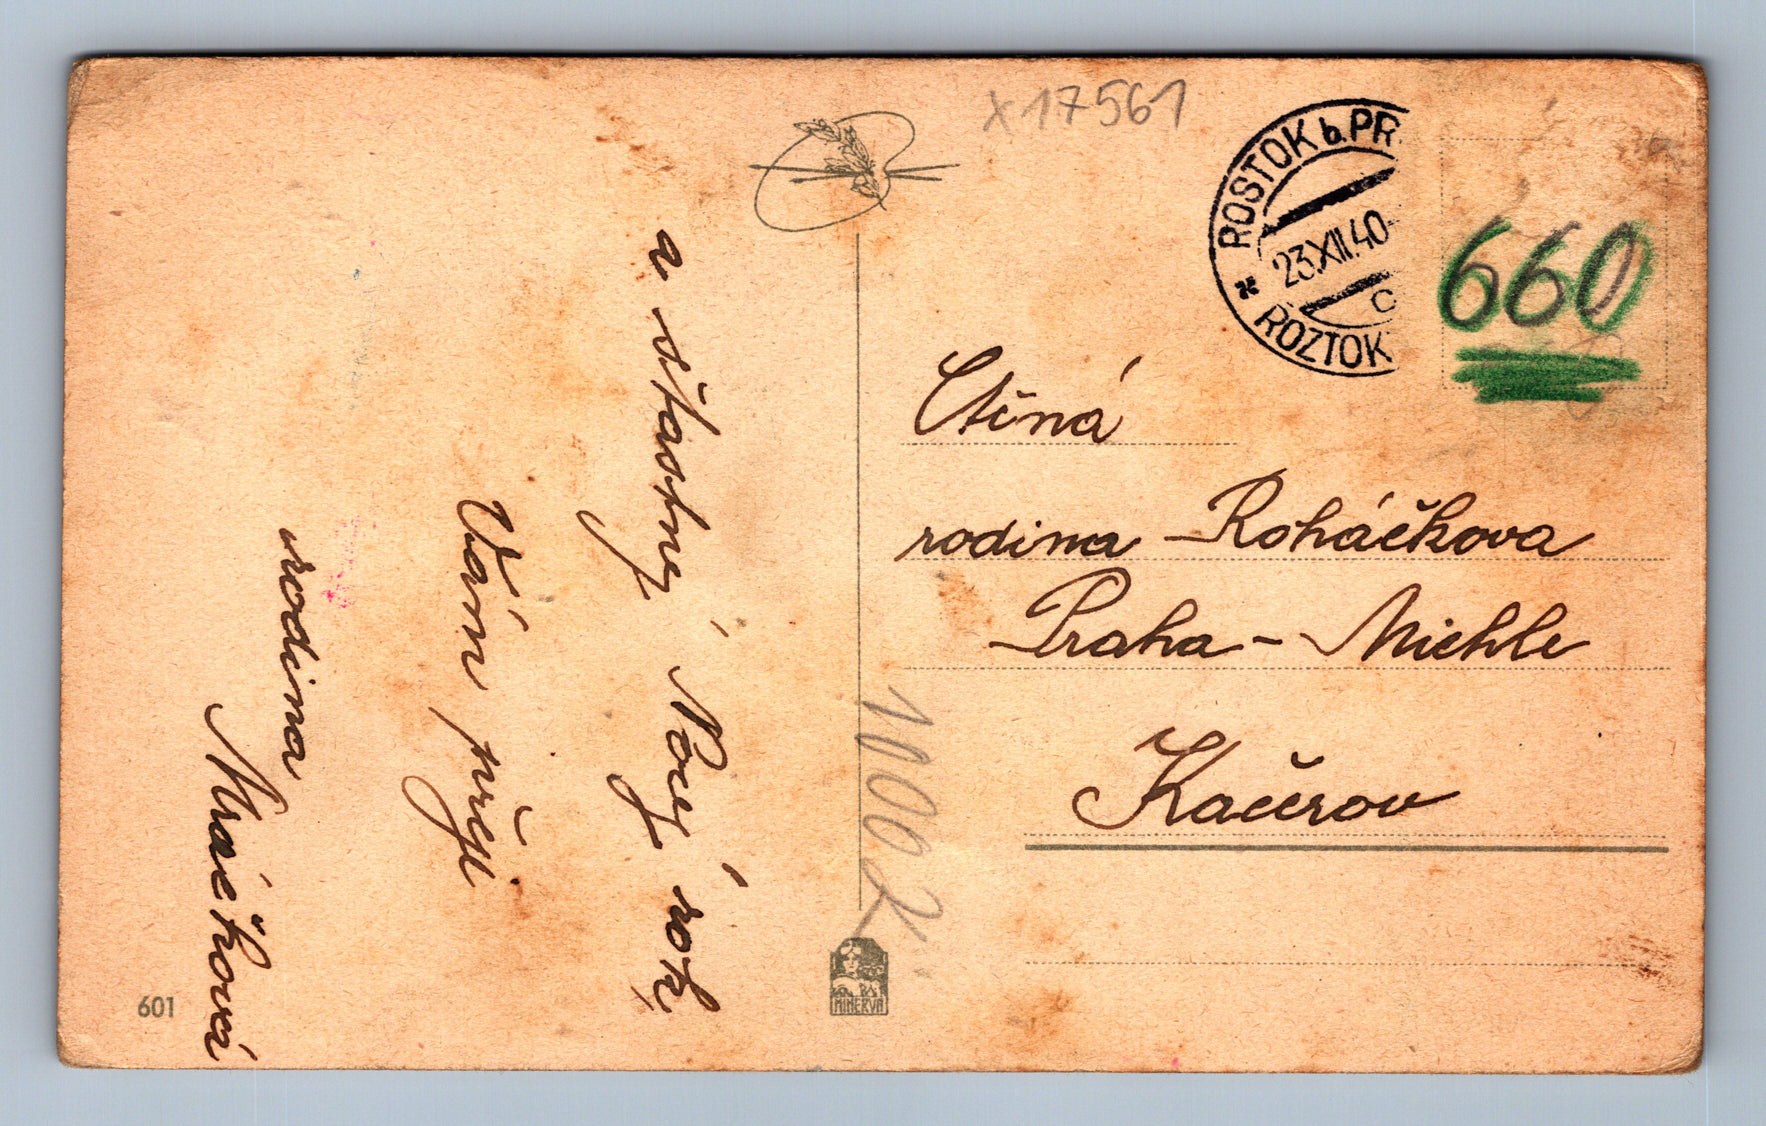 x17561
ROSTOK b. PR
23.XII.40-
C
ROZTOK
660
Ctěná
rodina Roháčkova
Praha - Michle
Kačerov
a šťastný Nový rok,
Vám přeje
rodina
Mráčková
1000
601
MINERVA